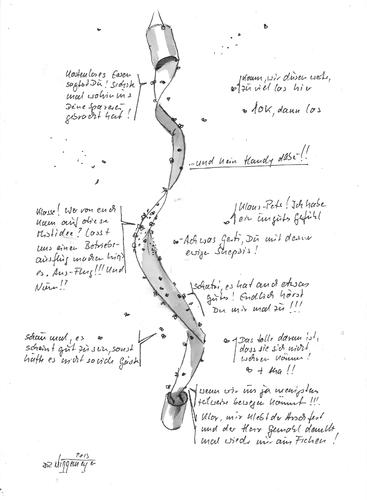 Kostenloses Essen
sagtest Du! Siehste
mal wohin uns
Deine
gebracht hat!
komm, wir düsen weiter,
zu viel los hier
OK, dann los
...und kein Handy dabei!!
Klasse! Wer von euch
kam auf diese
Mistidee? Lasst
uns einen Betriebs-
ausflug machen
es. Aus-Flug!!! Und
Nun!?
Klaus-Pete! Ich habe
ein ungutes Gefühl
Ach was Gerti, Du mit deiner
ewige Skepsis!
schatzi, es hat auch etwas
gutes! Endlich hörst
Du mir mal zu!!!
schau mal, es
scheint gut zu sein, sonst
hätte es nicht so viele Gäste
Das tolle daran ist,
dass sie sich nicht
wehren können!
!!
wenn wir uns ja wenigstens
teilweise bewegen könnt!!!
Klar, mir klebt der Arsch fest
und der Herr Gemahl denkt
mal wieder nur ans
2013